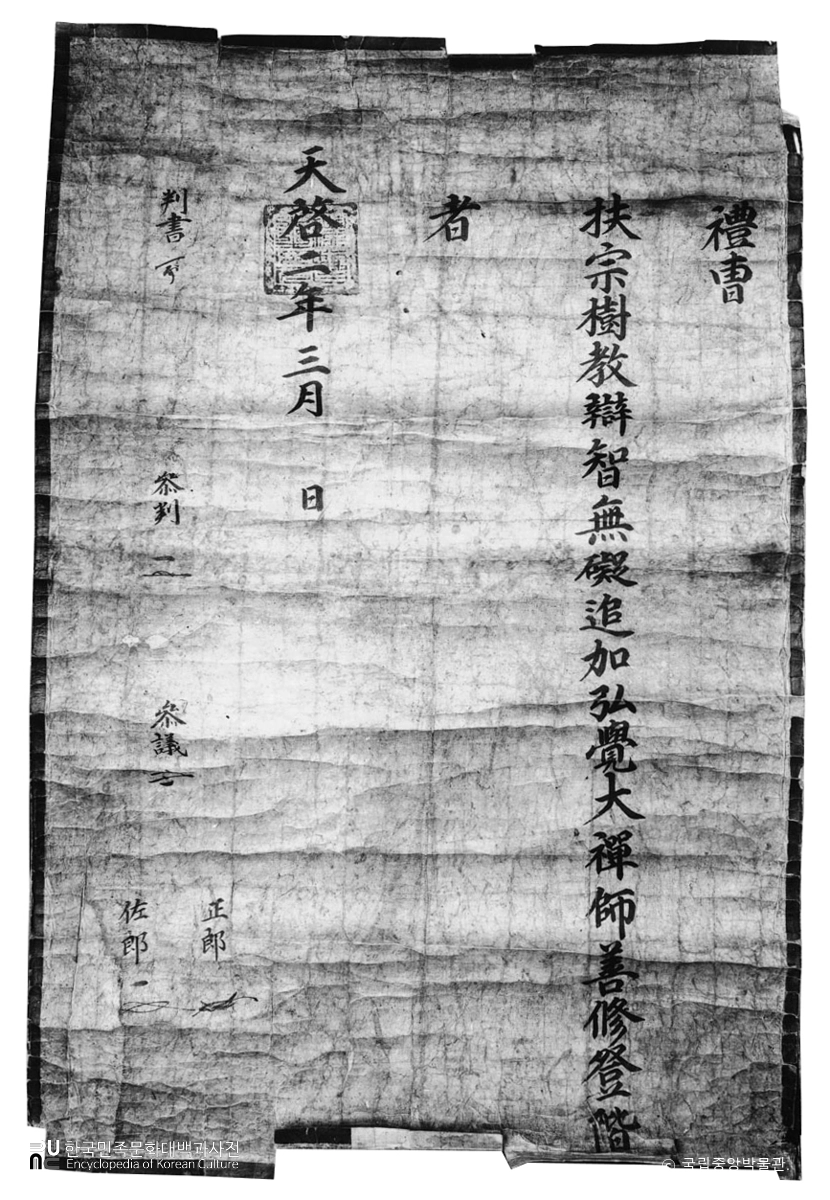 禮曹
扶宗樹教辯智無礙追加弘覺大禪師善修登階
者
天啓二年三月 日
判書
參判
參議
正郎
佐郎
한국민족문화대백과사전
Encyclopedia of Korean Culture
© 국립중앙박물관